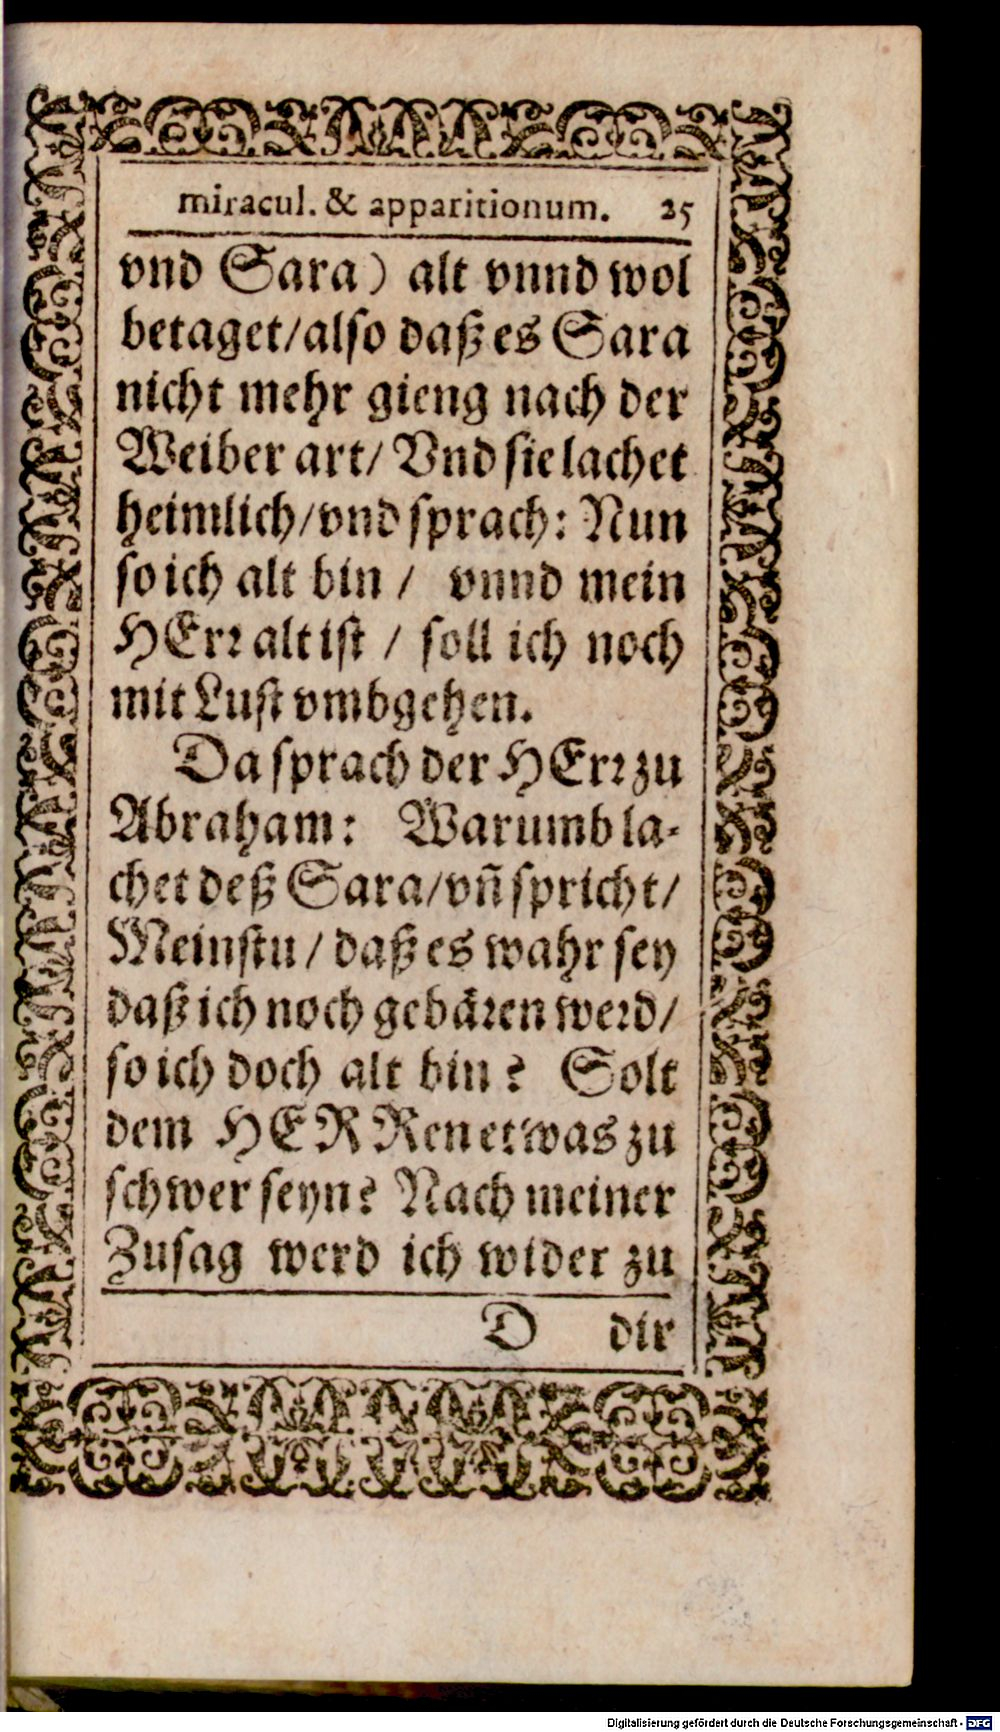 miracul. & apparitionum. 25
vnd Sara) alt vnnd wol
betaget/also daß es Sara
nicht mehr gieng nach der
Weiber art/ Vnd sie lachet
heimlich/vnd sprach: Nun
so ich alt bin / vnnd mein
HErr alt ist / soll ich noch
mit Lust vmbgehen.
Da sprach der HErr zu
Abraham: Warumb la-
chet deß Sara/vñ spricht/
Meinstu / daß es wahr sey
daß ich noch gebären werd/
so ich doch alt bin? Solt
dem HERRen etwas zu
schwer seyn? Nach meiner
Zusag werd ich wider zu
D dir
Digitalisierung gefördert durch die Deutsche Forschungsgemeinschaft - DFG